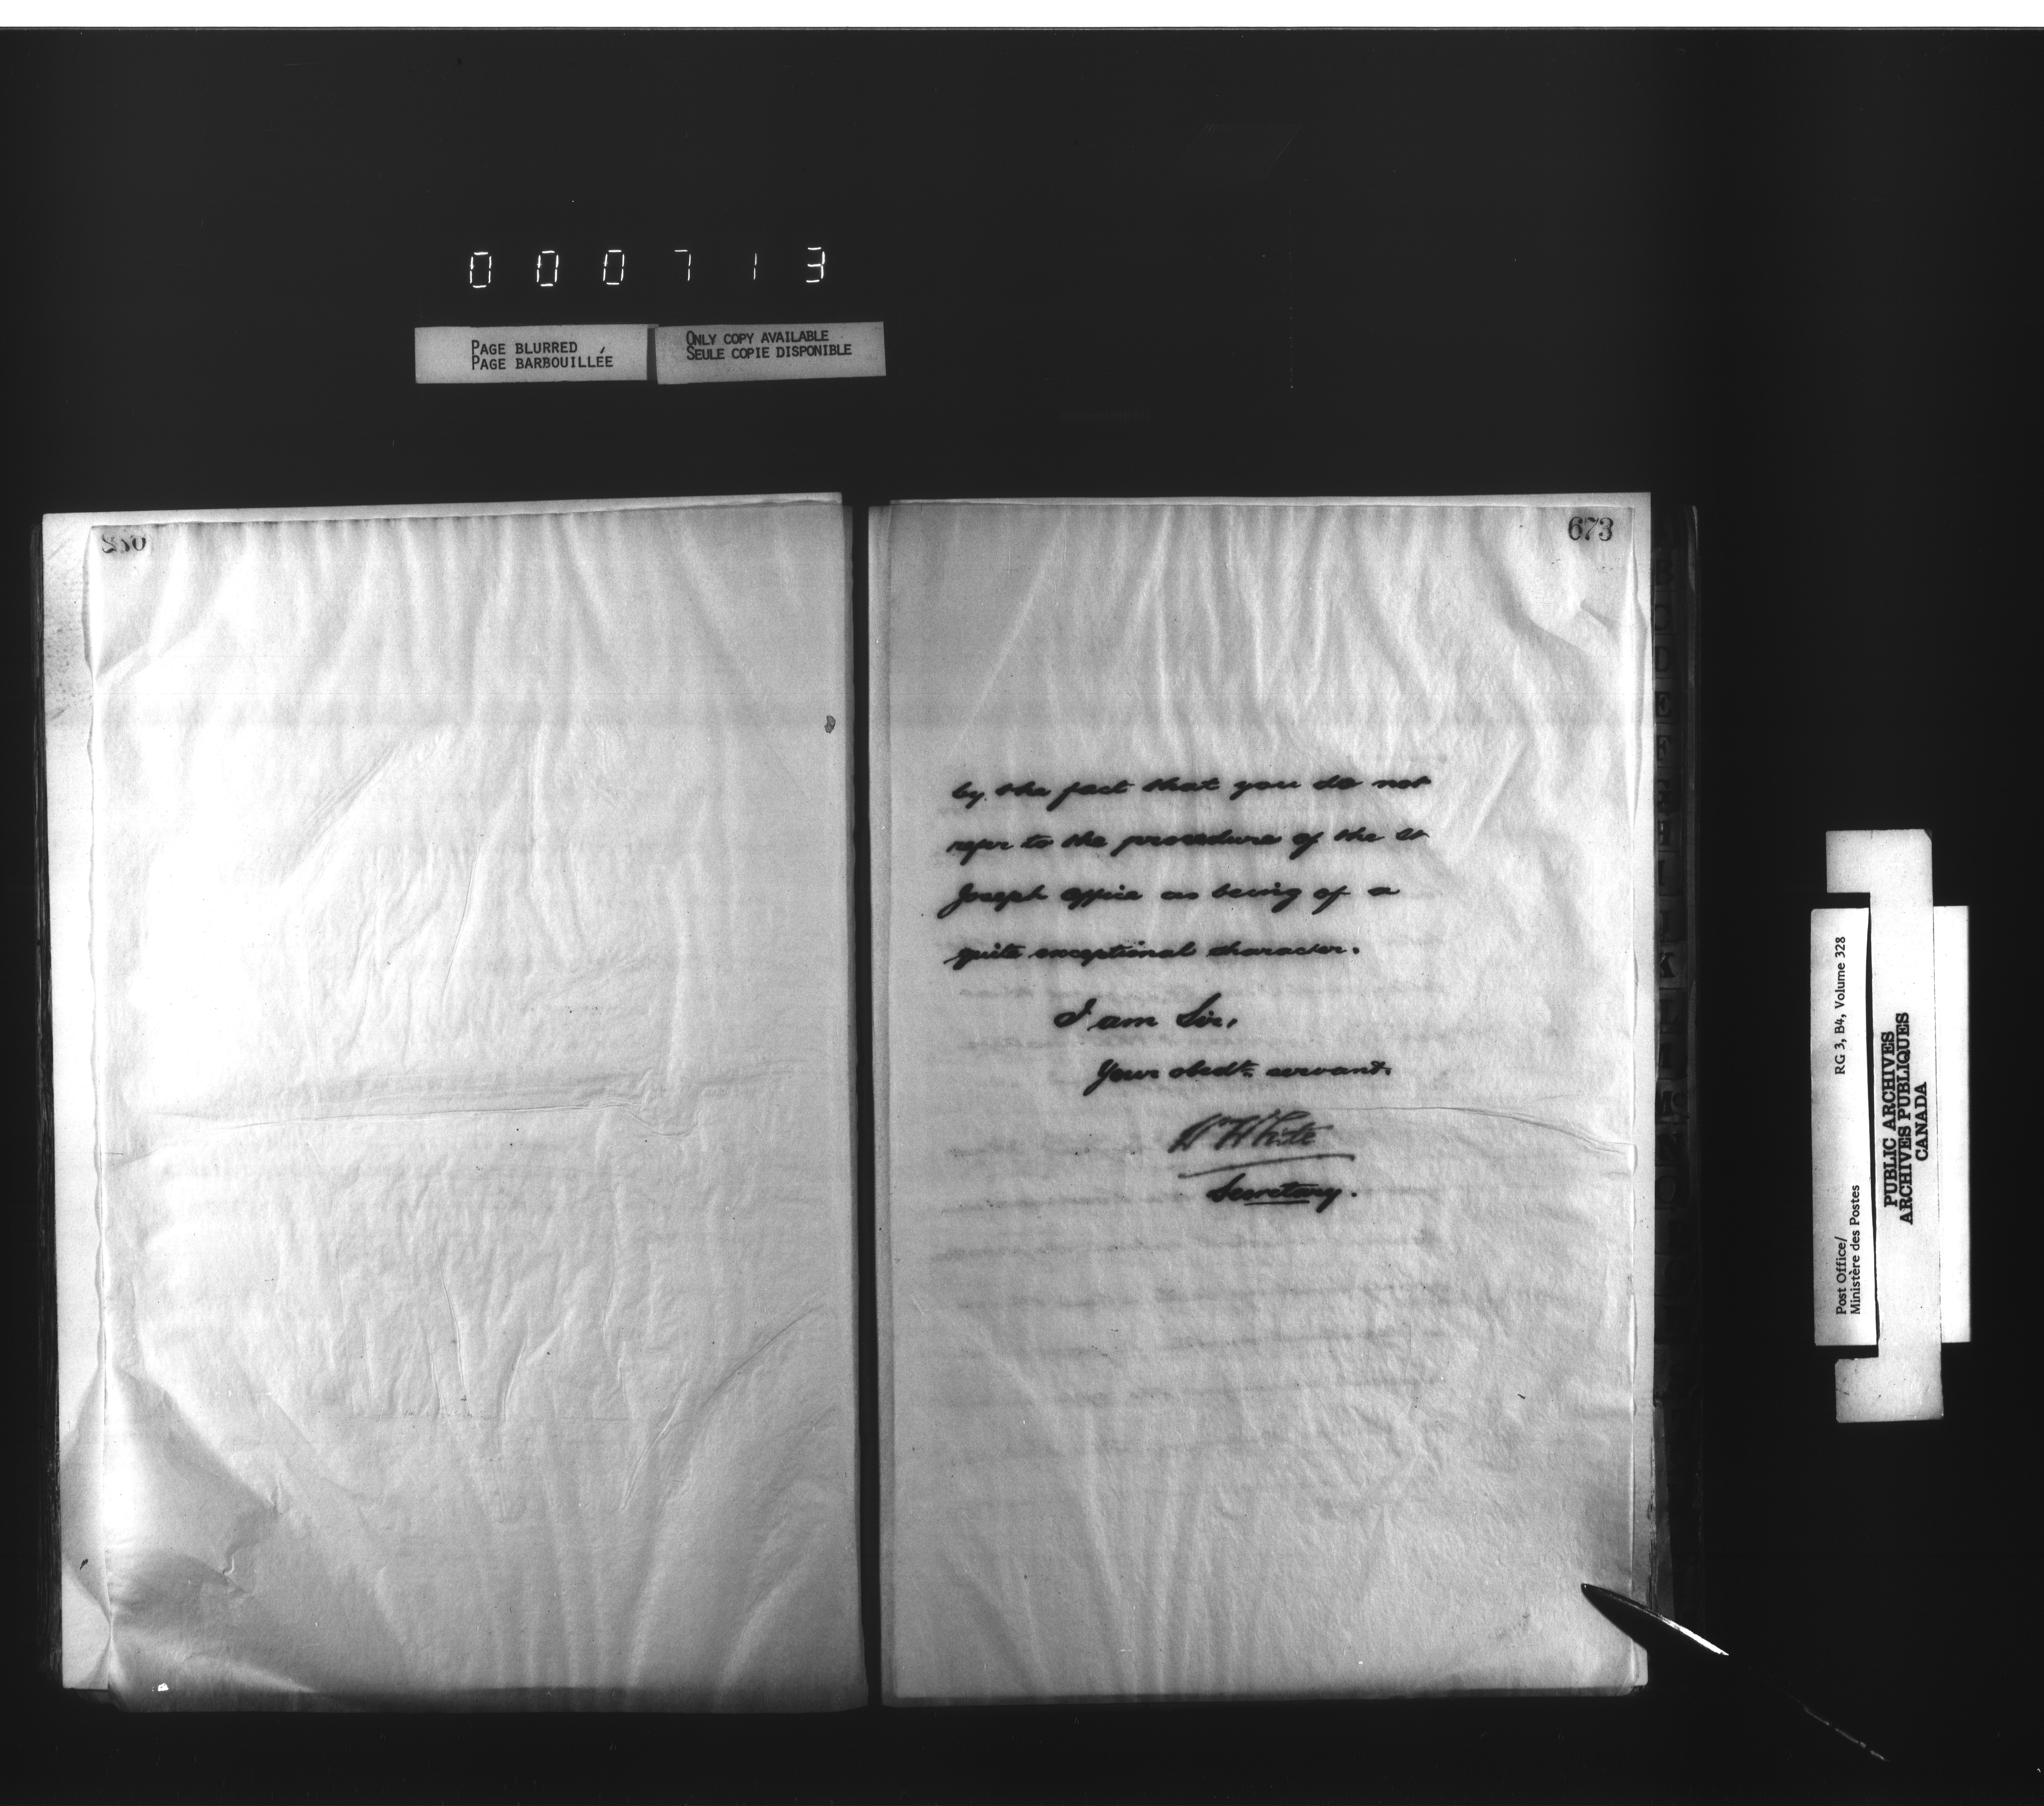 000713
PAGE BLURRED
PAGE BARBOUILLÉE
ONLY COPY AVAILABLE
SEULE COPIE DISPONIBLE
673
by the fact that you do not
refer to the procedure of the St
Joseph Office as being of a
quite exceptional character.
I am Sir,
Your obedt. servant.
Wm White
Secretary.
Post Office/
Ministère des Postes
RG 3, B4, Volume 328
PUBLIC ARCHIVES
ARCHIVES PUBLIQUES
CANADA